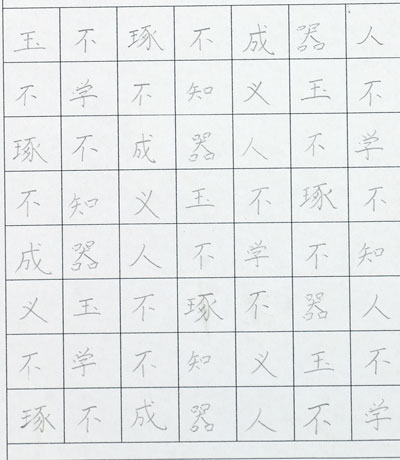 玉不琢不成器人
不学不知义玉不
琢不成器人不学
不知义玉不琢不
成器人不学不知
义玉不琢不器人
不学不知义玉不
琢不成器人不学